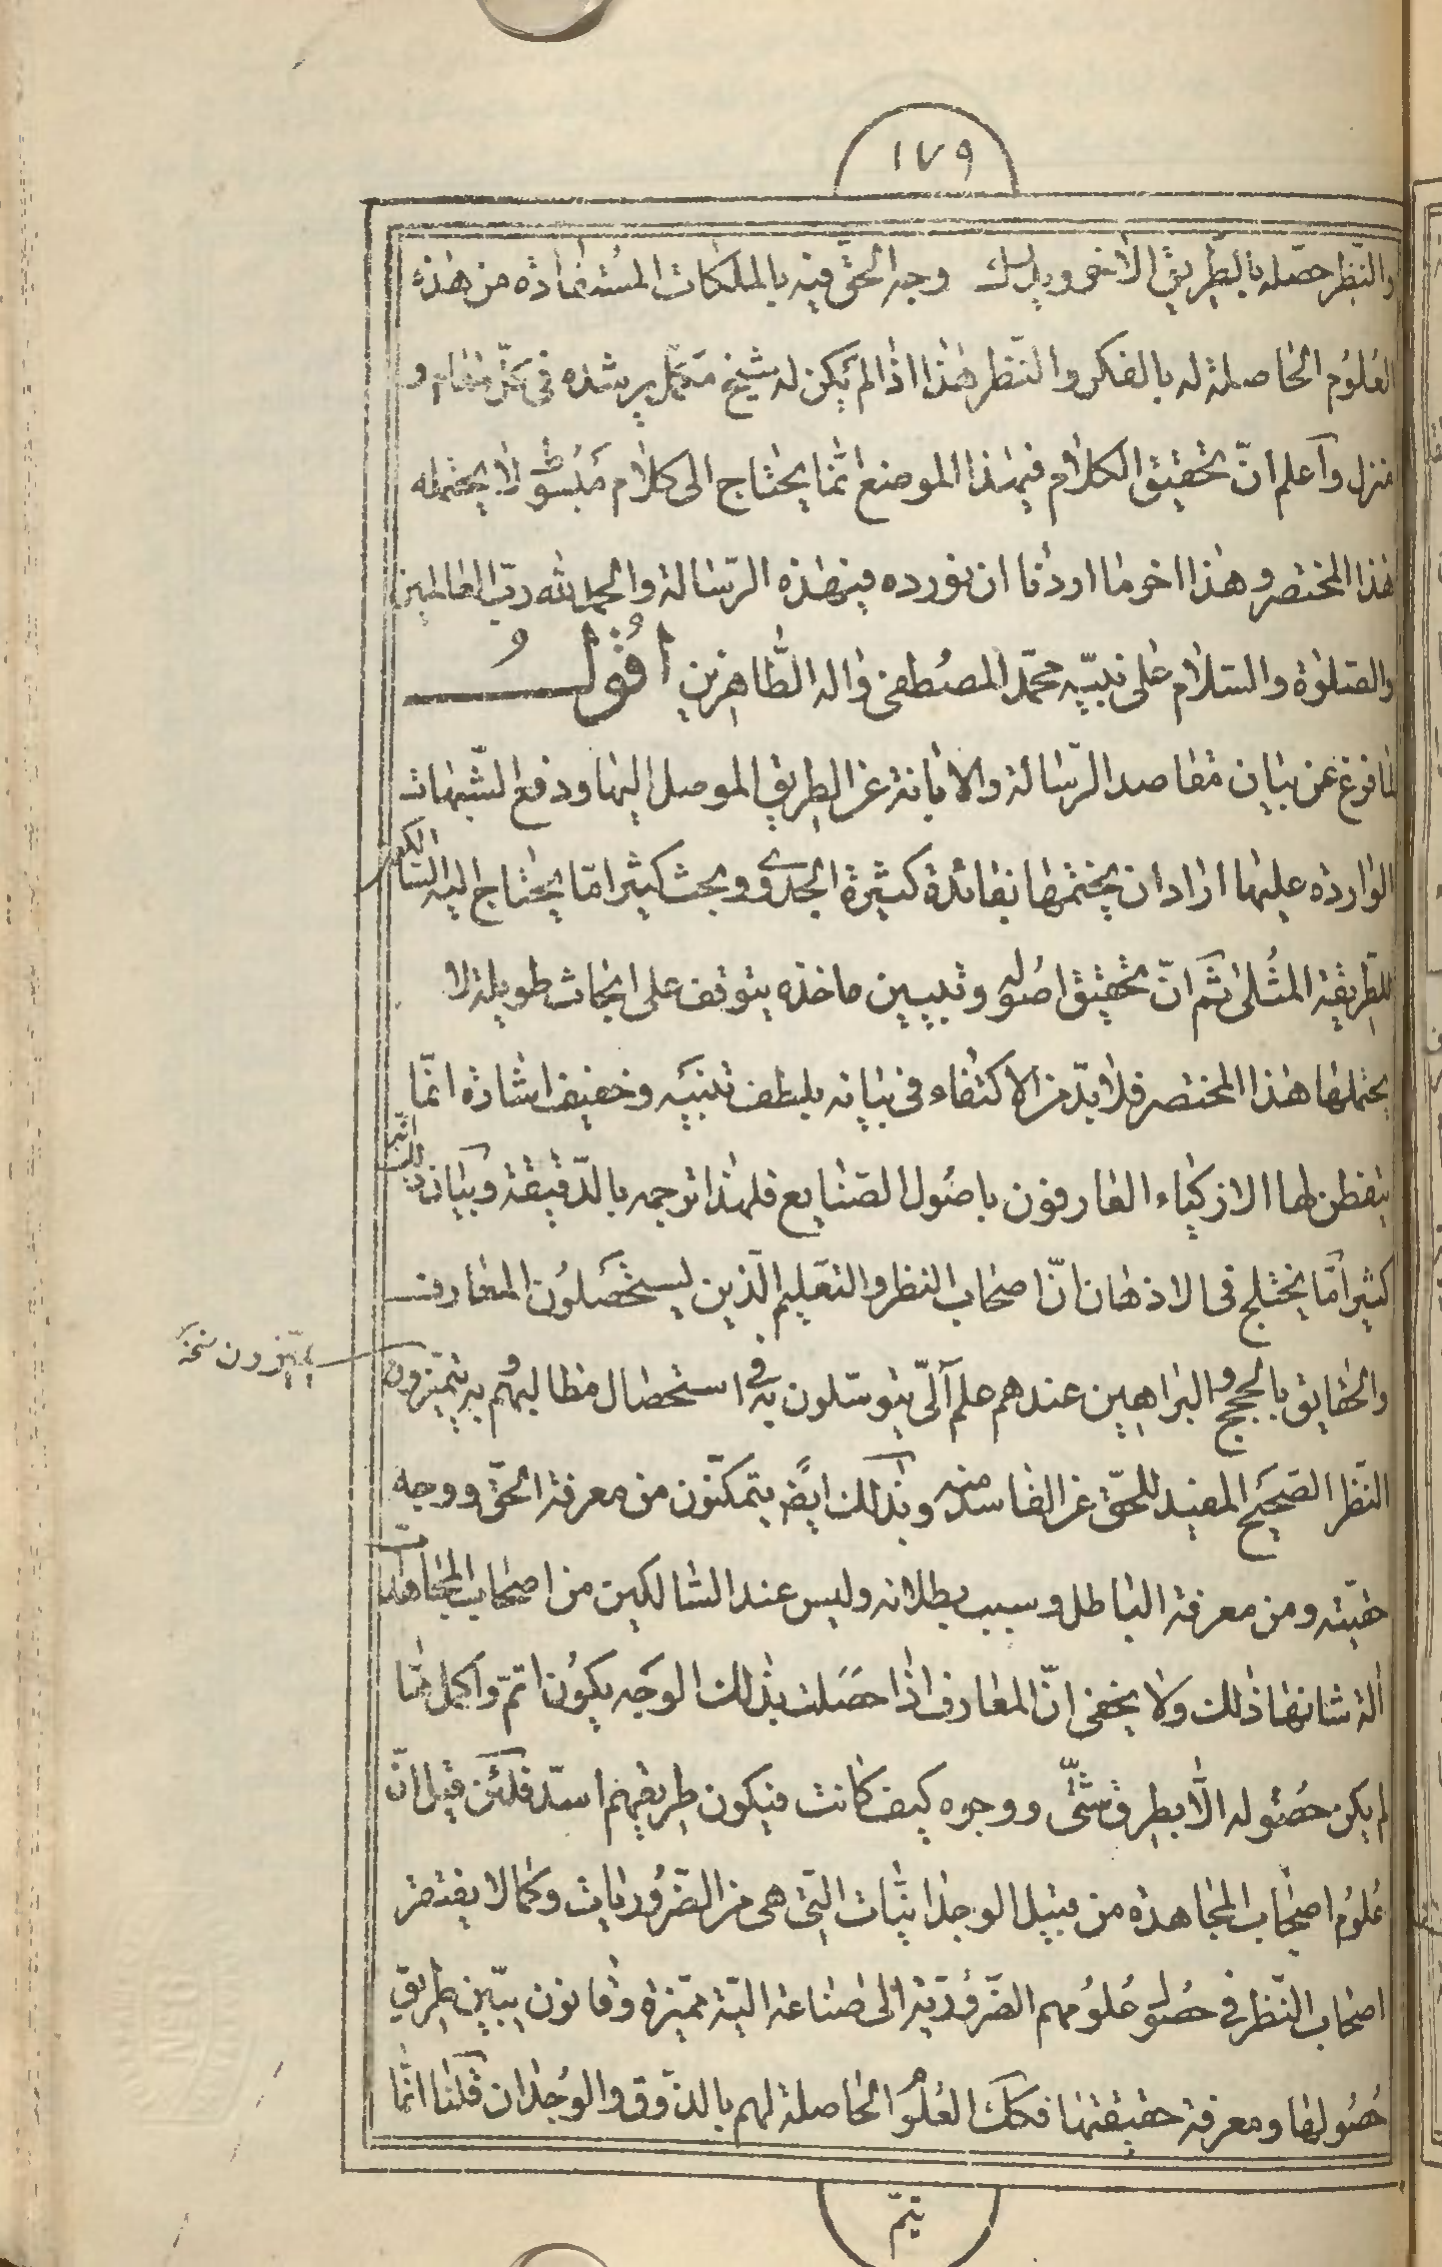 ١٧٩
والنّظر حصّله بالطّريق الاخر ويدرك وجه الحقّ فيه بالملكات المستفادة من هذه
العلوم الحاصلة له بالفكر والنّظر هذا اذا لم يكن له شيخ مكمل يرشده فى كلّ مقام و
منزل وآعلم انّ تحقيق الكلام فيهذا الموضع انّما يحتاج الى كلام مبسوط لا يحتمله
هذا المختصر وهذا اخر ما اردنا ان نورده فيهذه الرّسالة والحمد لله ربّ العالمين
والصّلوة والسّلام على نبيّه محمّد المصطفى واله الطّاهرين اقول
لما فرغ عن بيان مقاصد الرّسالة والابانة عن الطريق الموصل اليها ودفع الشّبهات
الوارده عليها اراد ان يختمها بفائدة كثيرة الجدوى وبحث كثيرا مّا يحتاج اليه السّالكون
للطّريقة المثلى ثمّ انّ تحقيق اصوله وتبيين ماخذه يتوقف على ابحاث طويلة لا
يحتملها هذا المختصر فلا بدّ من الاكتفاء فى بيانه بلطف تنبيه وخفيف اشارة انّما
يتفطن لها الازكياء العارفون باصول الصّنايع فلهذا ترجمه بالدّقيقة وبيان ذلك انّه
كثيرا مّا يختلج فى الاذهان انّ اصحاب النظر والتعّليم الّذين يستحصلون المعارف
والحقايق بالحجج والبراهين عندهم علم آلىّ يتوسّلون به فى استحصال مطاليبهم به يتميّزون
يميّزون نسخه
النّظر الصّحيح المفيد للحقّ عن الفاسد منه وبذلك ايضً يتمكّنون من معرفة الحقّ ووجه
حقيّته ومن معرفة الباطل وسبب بطلانه وليس عند السّالكين من اصحاب المجاهدة
الة شانها ذلك ولا يخفى انّ المعارف اذا حصلت بذلك الوجه يكون اتمّ واكمل ممّا
لم يكن حصوله الّا بطرق شتّى ووجوه كيف كانت فيكون طريقهم اسدّ فلئن قيل انّ
علوم اصحاب المجاهدة من قبيل الوجدانيّات الّتى هى من الضّروريات وكما لا يفتقر
اصحاب النّظر فى حصول علومهم الضّروريّة الى صناعة اليّة مميّزة وقانون يبيّن طريق
حصولها ومعرفة حقيقتها فكك العلوم الحاصلة لهم بالذّوق والوجدان قلنا انّما
يتمّ